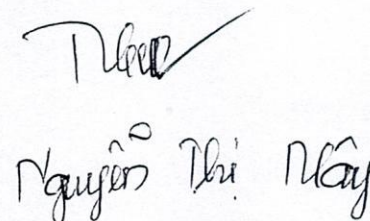 Nguyễn Thị Mây